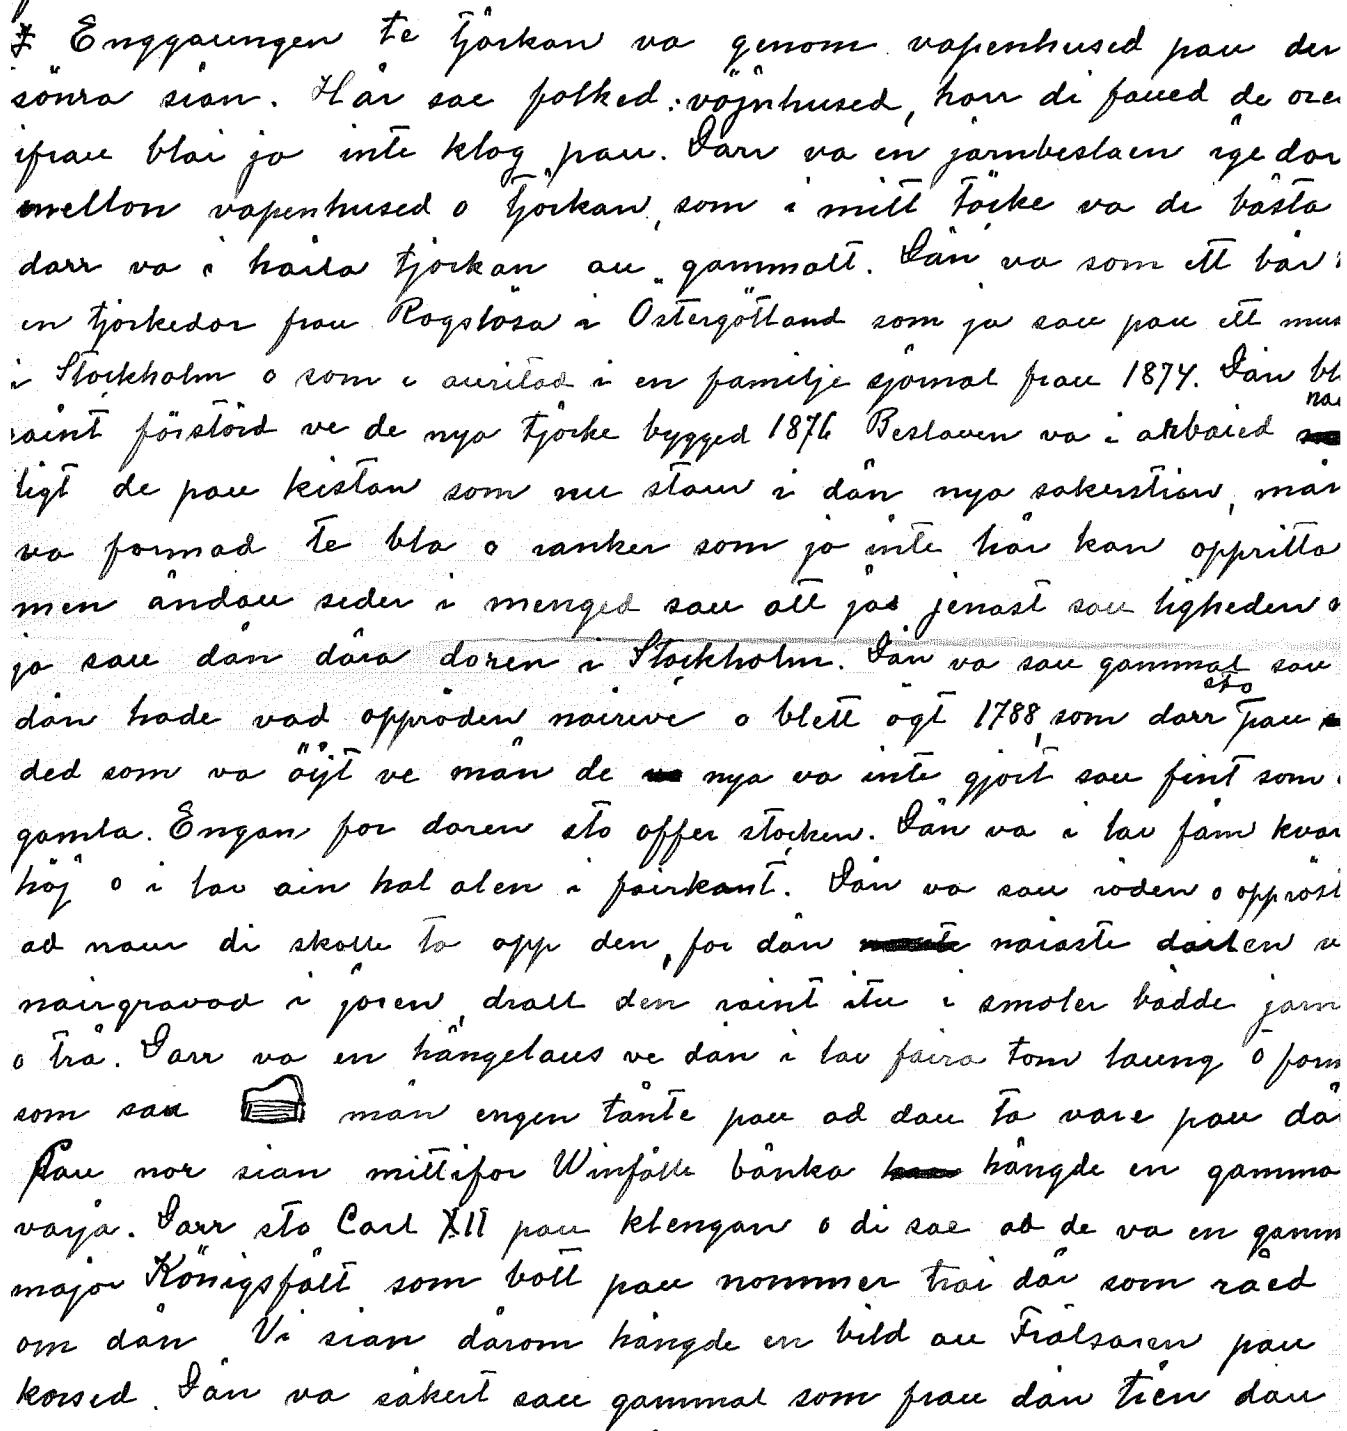 Enggaungen te tjörkan va genom vapenhused pau den
sönra sian. Här sae folked: vöjnhused, horr di faued de ore
ifrau blai ja inte klog pau. Darr va en järnbeslaen ige dor
mellon vapenhused o tjörkan, som i mitt töcke va de bästa
darr va i haila tjörkan au gammalt. Dän va som ett bär
en tjörkedor frau Rogslösa i Östergötland som ja sau pau ett mus
i Stockholm o som e auritad i en familje sjörnal frau 1874. Dän bl
raint förstörd ve de nya tjörke bygged 1876 Beslauen va i arbaied nai
ligt de pau kistan som nu staur i dän nya sakerstian, män
va formad te bla o ranker som ja inte här kan oppritta
men ändau seder i menged sau att ja jenast sau ligheden
ja sau dän dära doren i Stockholm. Dän va sau gammal sau
dän hade vad oppröden naireve o blett ögt 1788, som darr sto pau
ded som va öijt ve män de nya va inte gjort sau fint som
gamla. Engan for doren sto offer stocken. Dän va i lav fäm kvar
höj o i lav ain hal alen i fairkant. Dän va sau röden o oppröst
ad naur di skolle ta opp den, for dän naraste dailen v
nairgravad i jören, drall den raint itu i smoler bådde jarn
o trä. Darr va en hängelaus ve dän i lav faira tom laung o form
som sau män engen tänte pau ad dau ta vare pau dä
Pau nor sian mittifor Winfälle bänka hängde en gamma
varja. Darr sto Carl XII pau klengan o di sae ad de va en gamm
major Königsfält som bott pau nommer trai där som räed
om dän Vi sian därom hängde en bild au Frälsaren pau
korsed. Dän va säkert sau gammal som frau dän tien dau